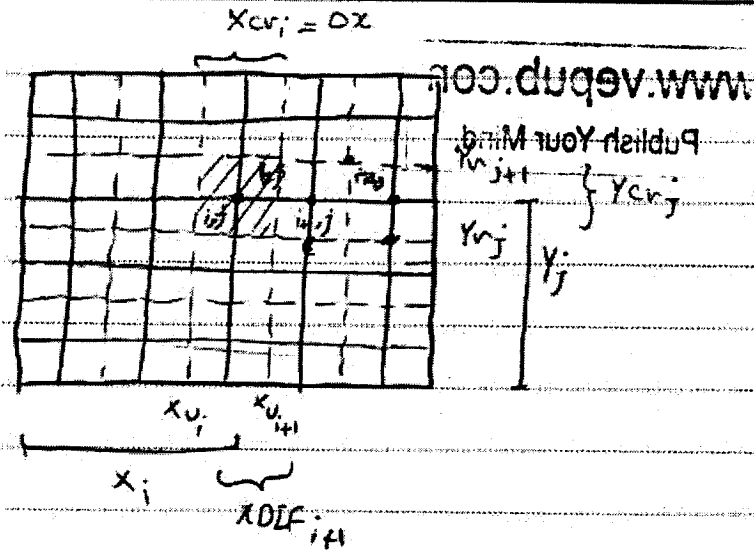 Xcv i = DX
www.vepub.com
Publish Your Mind.
Yv j+1
Ycv j
i,j
Yv j
Y j
X u i
X u i+1
X i
XDIF i+1